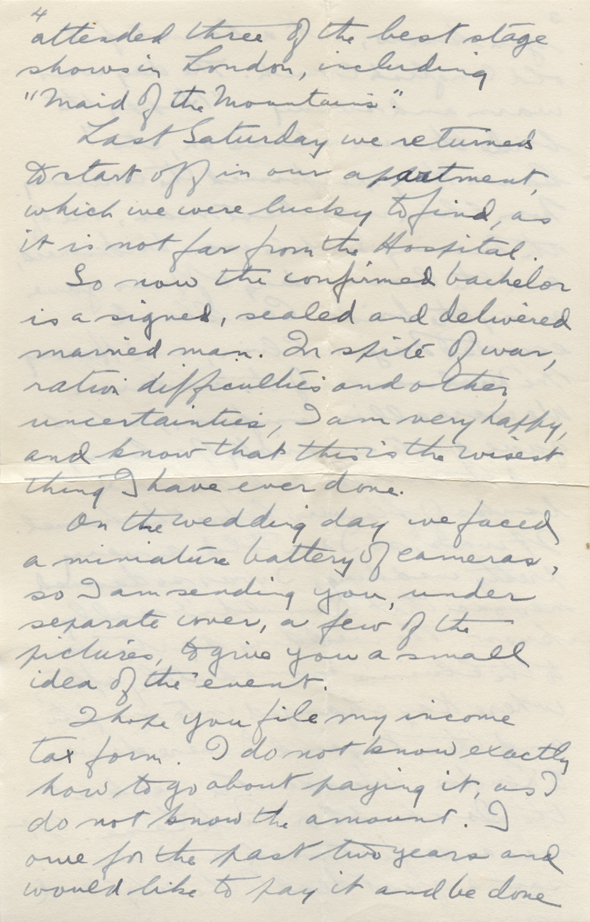 4
attended three of the best stage
shows in London, including
"Maid of the Mountains".
Last Saturday we returned
to start off in our apartment,
which we were lucky to find, as
it is not far from the Hospital.
So now the confirmed bachelor
is a signed, sealed and delivered
married man. In spite of war,
ration difficulties and other
uncertainties, I am very happy,
and know that this is the wisest
thing I have ever done.
On the wedding day we faced
a miniature battery of cameras,
so I am sending you, under
separate cover, a few of the
pictures, to give you a small
idea of the event.
I hope you file my income
tax form. I do not know exactly
how to go about paying it, as I
do not know the amount. I
owe for the past two years and
would like to pay it and be done